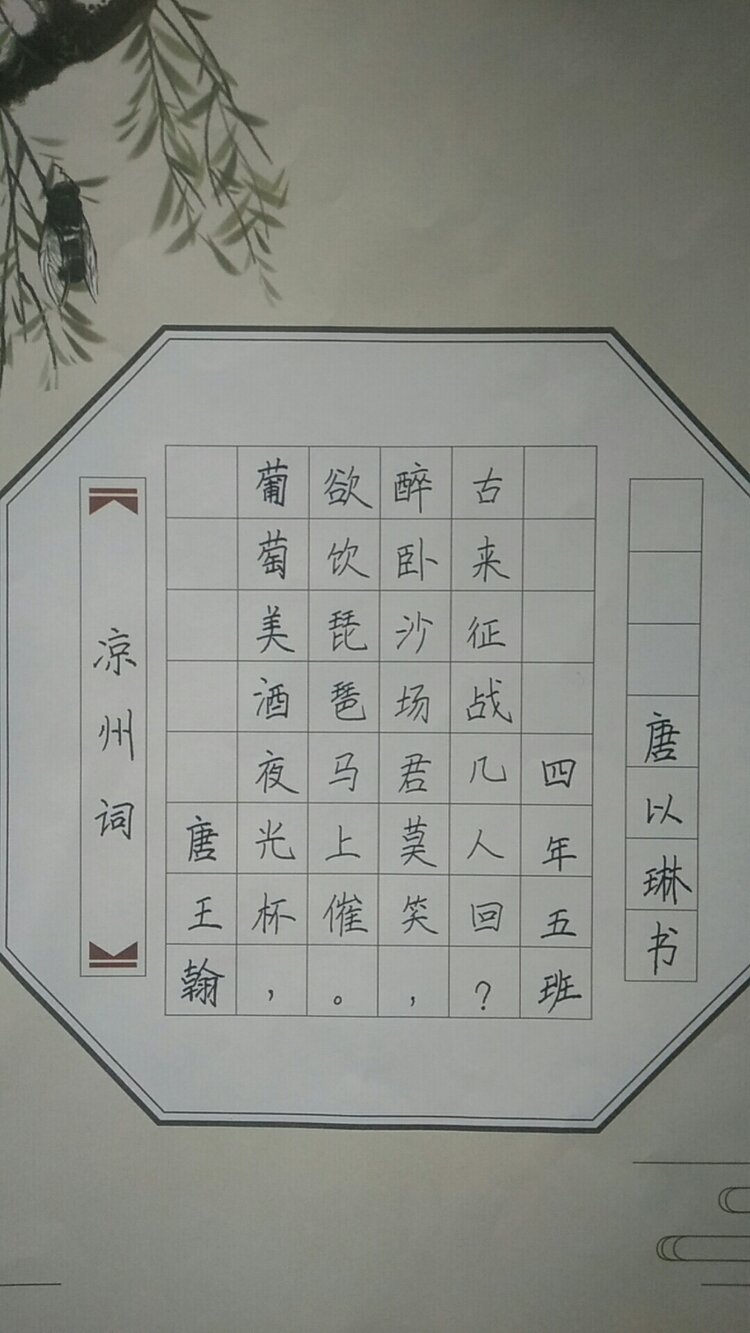 凉州词
唐王翰
葡萄美酒夜光杯，
欲饮琵琶马上催。
醉卧沙场君莫笑，
古来征战几人回？
四年五班
唐以琳书